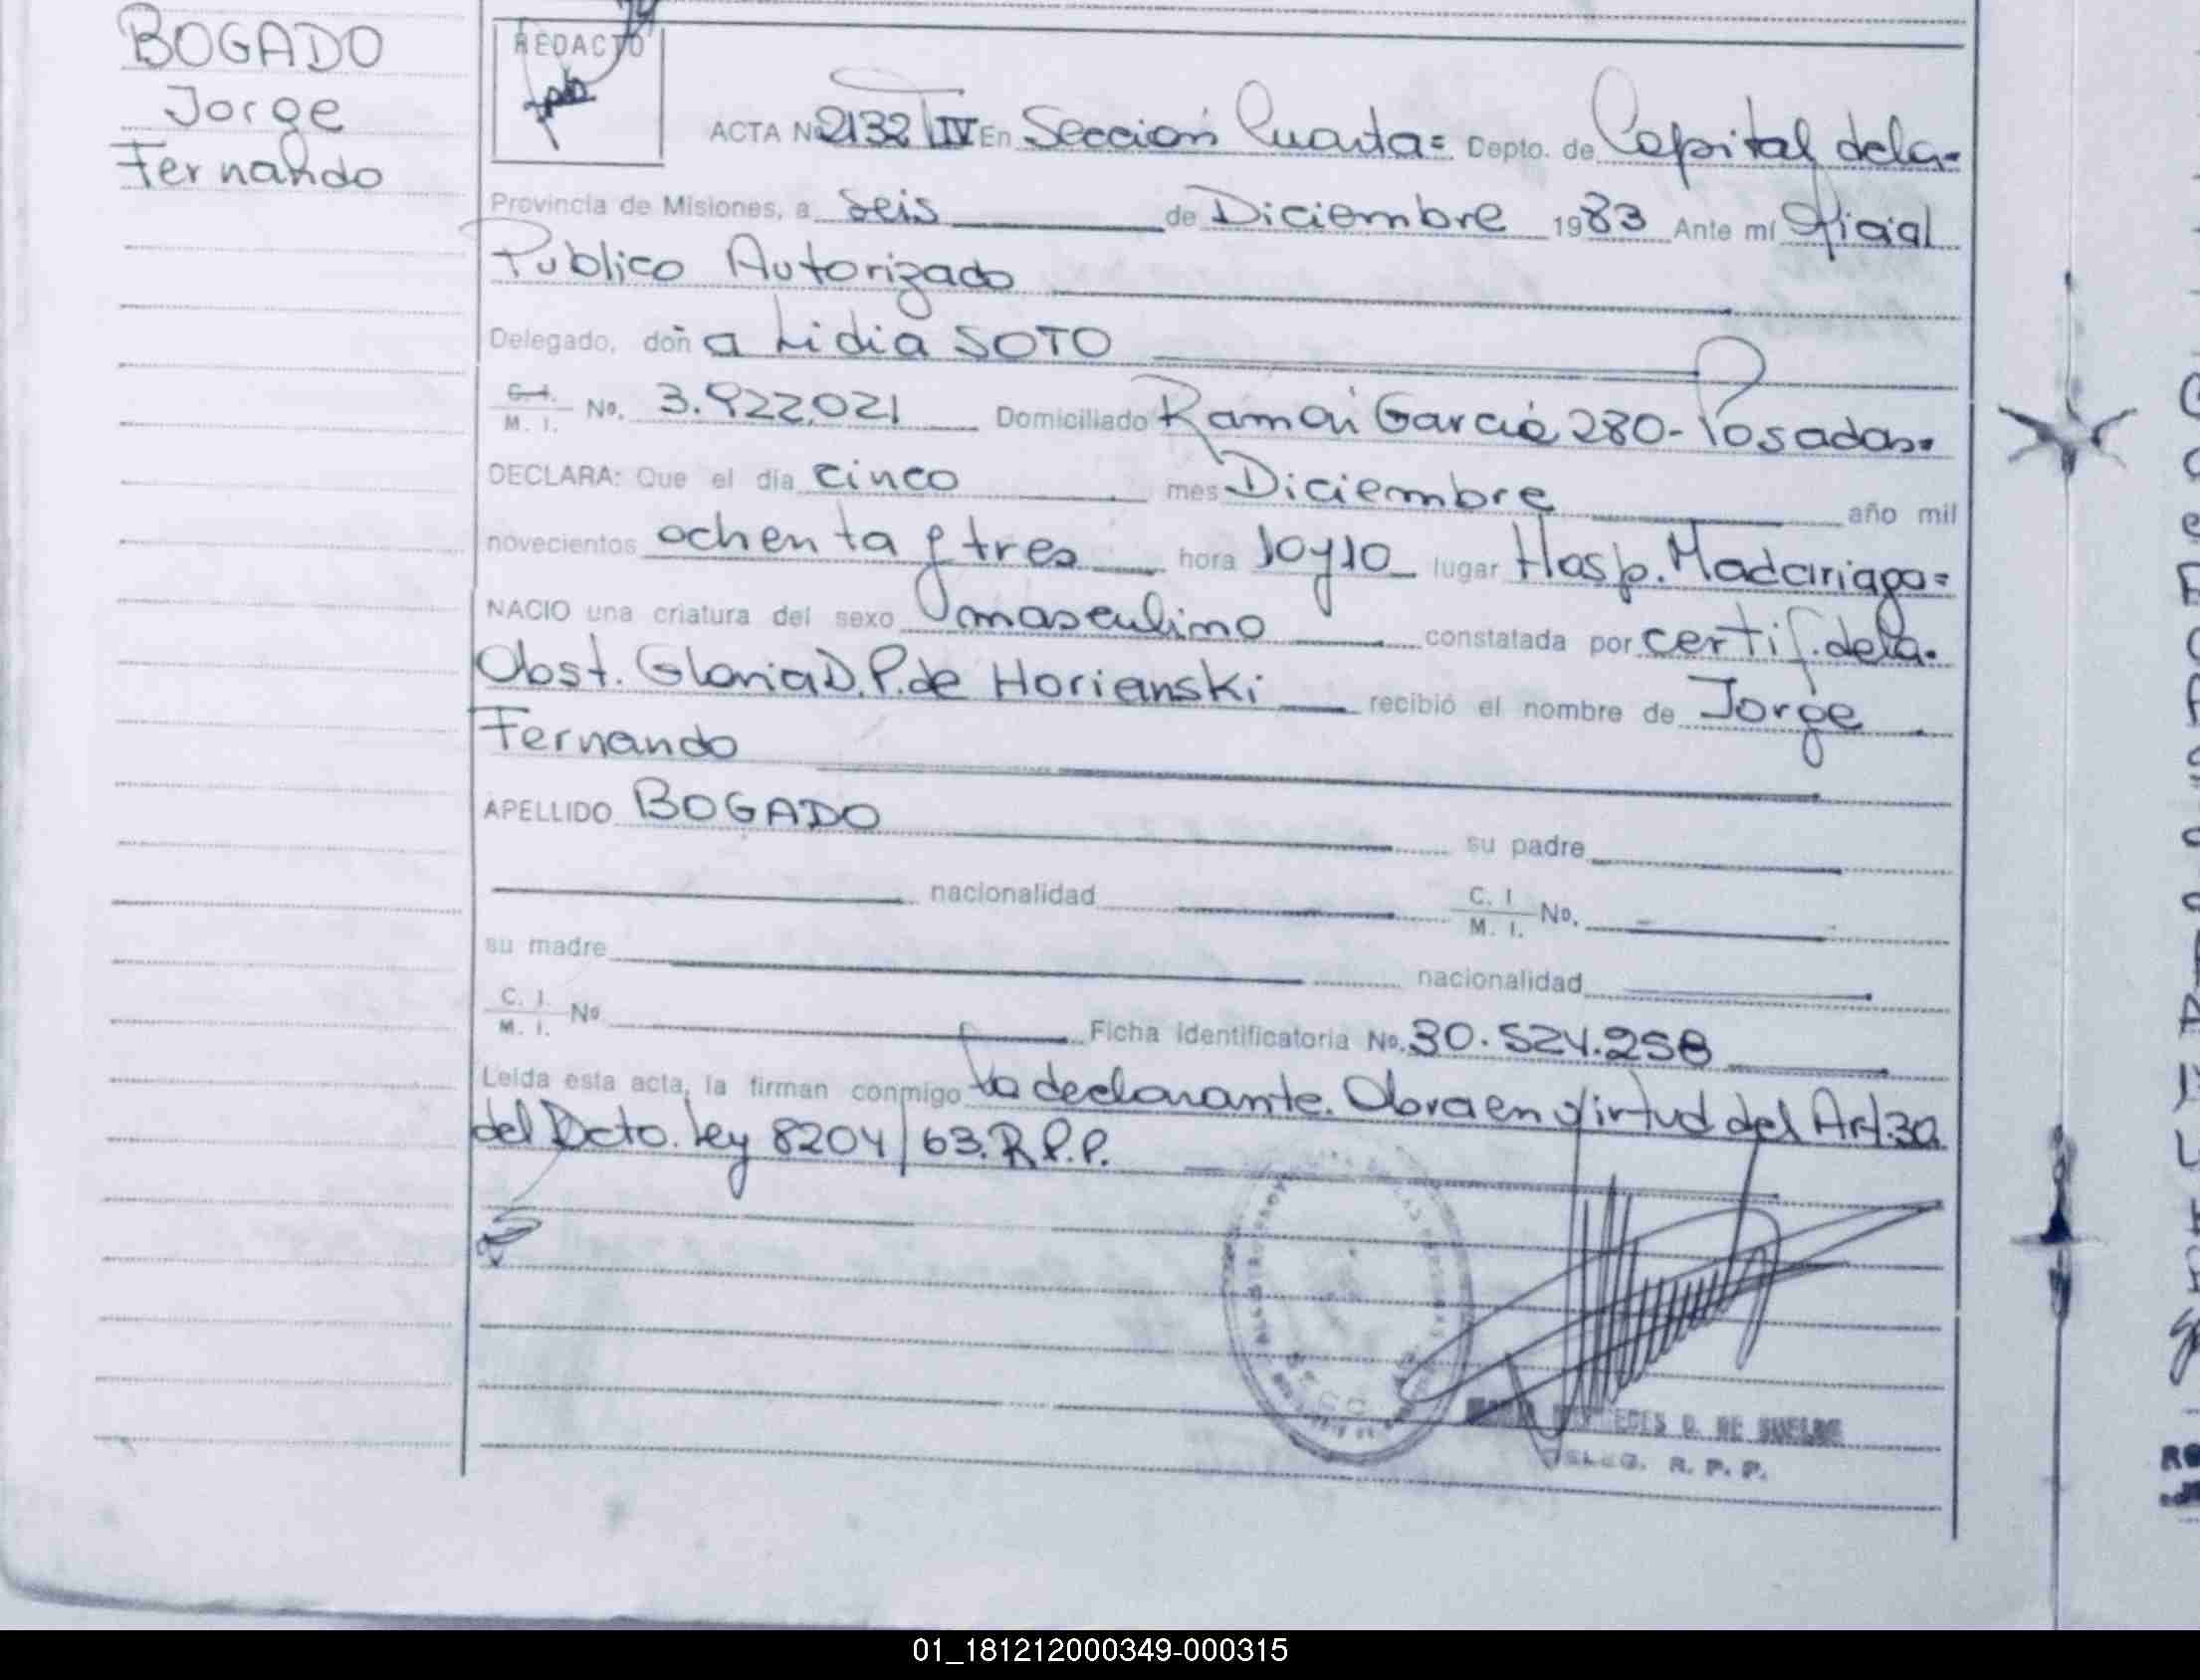 BOGADO
Jorge
Fernando
REDACTO
ACTA No 2132 T IV En Sección Cuarta= Depto. de Capital de la-
Provincia de Misiones, a seis de Diciembre 1983 Ante mí Oficial
Publico Autorizado
Delegado, doña Lidia SOTO
C. I. M. I. No. 3.922.021 Domiciliado Ramón García 280-Posadas-
DECLARA: Que el día cinco mes Diciembre año mil
novecientos ochenta y tres hora 10y10 lugar Hosp. Madariaga=
NACIO una criatura del sexo masculino constatada por certif. de la-
Obst. Gloria D. P. de Horianski recibió el nombre de Jorge
Fernando
APELLIDO BOGADO su padre
nacionalidad C. I M. I. No.
su madre nacionalidad
C. I. M. I. No Ficha Identificatoria No. 30.524.258
Leída esta acta, la firman conmigo la declarante. Obra en virtud del Art. 30
del Dcto. Ley 8204/63. R.P.P.
D. DE
DELEG. R. P. P.
01_181212000349-000315